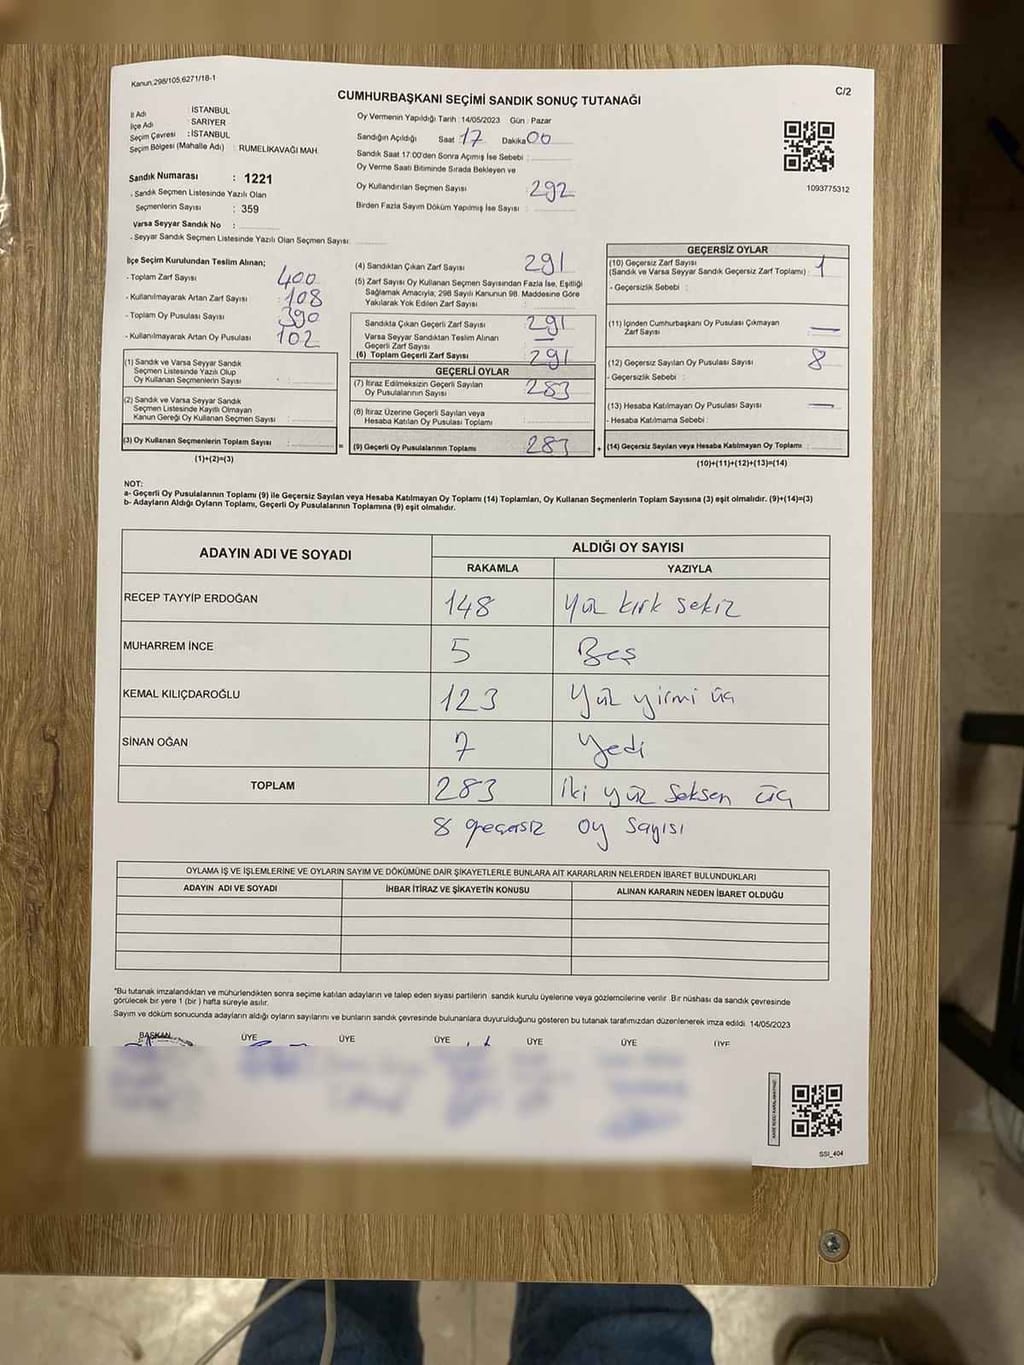 Kanun, 298/105,6271/18-1
CUMHURBAŞKANI SEÇİMİ SANDIK SONUÇ TUTANAĞI
C/2
İl Adı : İSTANBUL
İlçe Adı : SARIYER
Seçim Çevresi : İSTANBUL
Seçim Bölgesi (Mahalle Adı) : RUMELİKAVAĞI MAH.
Sandık Numarası : 1221
- Sandık Seçmen Listesinde Yazılı Olan
Seçmenlerin Sayısı : 359
Varsa Seyyar Sandık No :
- Seyyar Sandık Seçmen Listesinde Yazılı Olan Seçmen Sayısı:
Oy Vermenin Yapıldığı Tarih : 14/05/2023 Gün : Pazar
Sandığın Açıldığı Saat 17 Dakika 00
Sandık Saat 17:00'den Sonra Açımış İse Sebebi :
Oy Verme Saati Bitiminde Sırada Bekleyen ve
Oy Kullandırılan Seçmen Sayısı 292
Birden Fazla Sayım Döküm Yapılmış İse Sayısı :
1093775312
İlçe Seçim Kurulundan Teslim Alınan;
- Toplam Zarf Sayısı 400
- Kullanılmayarak Artan Zarf Sayısı : 108
- Toplam Oy Pusulası Sayısı 390
- Kullanılmayarak Artan Oy Pusulası 102
(1) Sandık ve Varsa Seyyar Sandık
Seçmen Listesinde Yazılı Olup
Oy Kullanan Seçmenlerin Sayısı
(2) Sandık ve Varsa Seyyar Sandık
Seçmen Listesinde Kayıtlı Olmayan
Kanun Gereği Oy Kullanan Seçmen Sayısı :
(3) Oy Kullanan Seçmenlerin Toplam Sayısı :
(1)+(2)=(3)
(4) Sandıktan Çıkan Zarf Sayısı 291
(5) Zarf Sayısı Oy Kullanan Seçmen Sayısından Fazla İse, Eşitliği
Sağlamak Amacıyla; 298 Sayılı Kanunun 98. Maddesine Göre
Yakılarak Yok Edilen Zarf Sayısı :
Sandıkta Çıkan Geçerli Zarf Sayısı : 291
Varsa Seyyar Sandıktan Teslim Alınan
Geçerli Zarf Sayısı : —
(6) Toplam Geçerli Zarf Sayısı : 291
GEÇERLİ OYLAR
(7) İtiraz Edilmeksizin Geçerli Sayılan
Oy Pusulalarının Sayısı : 283
(8) İtiraz Üzerine Geçerli Sayılan veya
Hesaba Katılan Oy Pusulası Toplamı :
= (9) Geçerli Oy Pusulalarının Toplamı : 283
GEÇERSİZ OYLAR
(10) Geçersiz Zarf Sayısı
(Sandık ve Varsa Seyyar Sandık Geçersiz Zarf Toplamı) : 1
- Geçersizlik Sebebi :
(11) İçinden Cumhurbaşkanı Oy Pusulası Çıkmayan
Zarf Sayısı : —
(12) Geçersiz Sayılan Oy Pusulası Sayısı : 8
- Geçersizlik Sebebi :
(13) Hesaba Katılmayan Oy Pusulası Sayısı : —
- Hesaba Katılmama Sebebi :
+ (14) Geçersiz Sayılan veya Hesaba Katılmayan Oy Toplamı :
(10)+(11)+(12)+(13)=(14)
NOT:
a- Geçerli Oy Pusulalarının Toplamı (9) ile Geçersiz Sayılan veya Hesaba Katılmayan Oy Toplamı (14) Toplamları, Oy Kullanan Seçmenlerin Toplam Sayısına (3) eşit olmalıdır. (9)+(14)=(3)
b- Adayların Aldığı Oyların Toplamı, Geçerli Oy Pusulalarının Toplamına (9) eşit olmalıdır.
ADAYIN ADI VE SOYADI
ALDIĞI OY SAYISI
RAKAMLA YAZIYLA
RECEP TAYYİP ERDOĞAN 148 Yüz kırk sekiz
MUHARREM İNCE 5 Beş
KEMAL KILIÇDAROĞLU 123 Yüz yirmi üç
SİNAN OĞAN 7 Yedi
TOPLAM 283 iki yüz seksen üç
8 geçersiz oy sayısı
OYLAMA İŞ VE İŞLEMLERİNE VE OYLARIN SAYIM VE DÖKÜMÜNE DAİR ŞİKAYETLERLE BUNLARA AİT KARARLARIN NELERDEN İBARET BULUNDUKLARI
ADAYIN ADI VE SOYADI İHBAR İTİRAZ VE ŞİKAYETİN KONUSU ALINAN KARARIN NEDEN İBARET OLDUĞU
*Bu tutanak imzalandıktan ve mühürlendikten sonra seçime katılan adayların ve talep eden siyasi partilerin sandık kurulu üyelerine veya gözlemcilerine verilir. Bir nüshası da sandık çevresinde
görülecek bir yere 1 (bir ) hafta süreyle asılır.
Sayım ve döküm sonucunda adayların aldığı oyların sayılarını ve bunların sandık çevresinde bulunanlara duyurulduğunu gösteren bu tutanak tarafımızdan düzenlenerek imza edildi. 14/05/2023
BAŞKAN ÜYE ÜYE ÜYE ÜYE ÜYE ÜYE
SSI_404